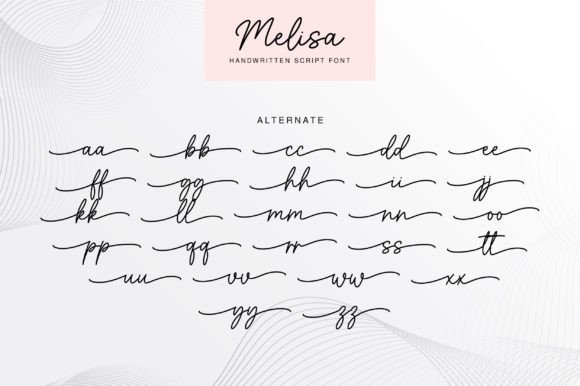 Melisa
HANDWRITTEN SCRIPT FONT
ALTERNATE
aa bb cc dd ee
ff gg hh ii jj
kk ll mm nn oo
pp qq rr ss tt
uu vv ww xx
yy zz